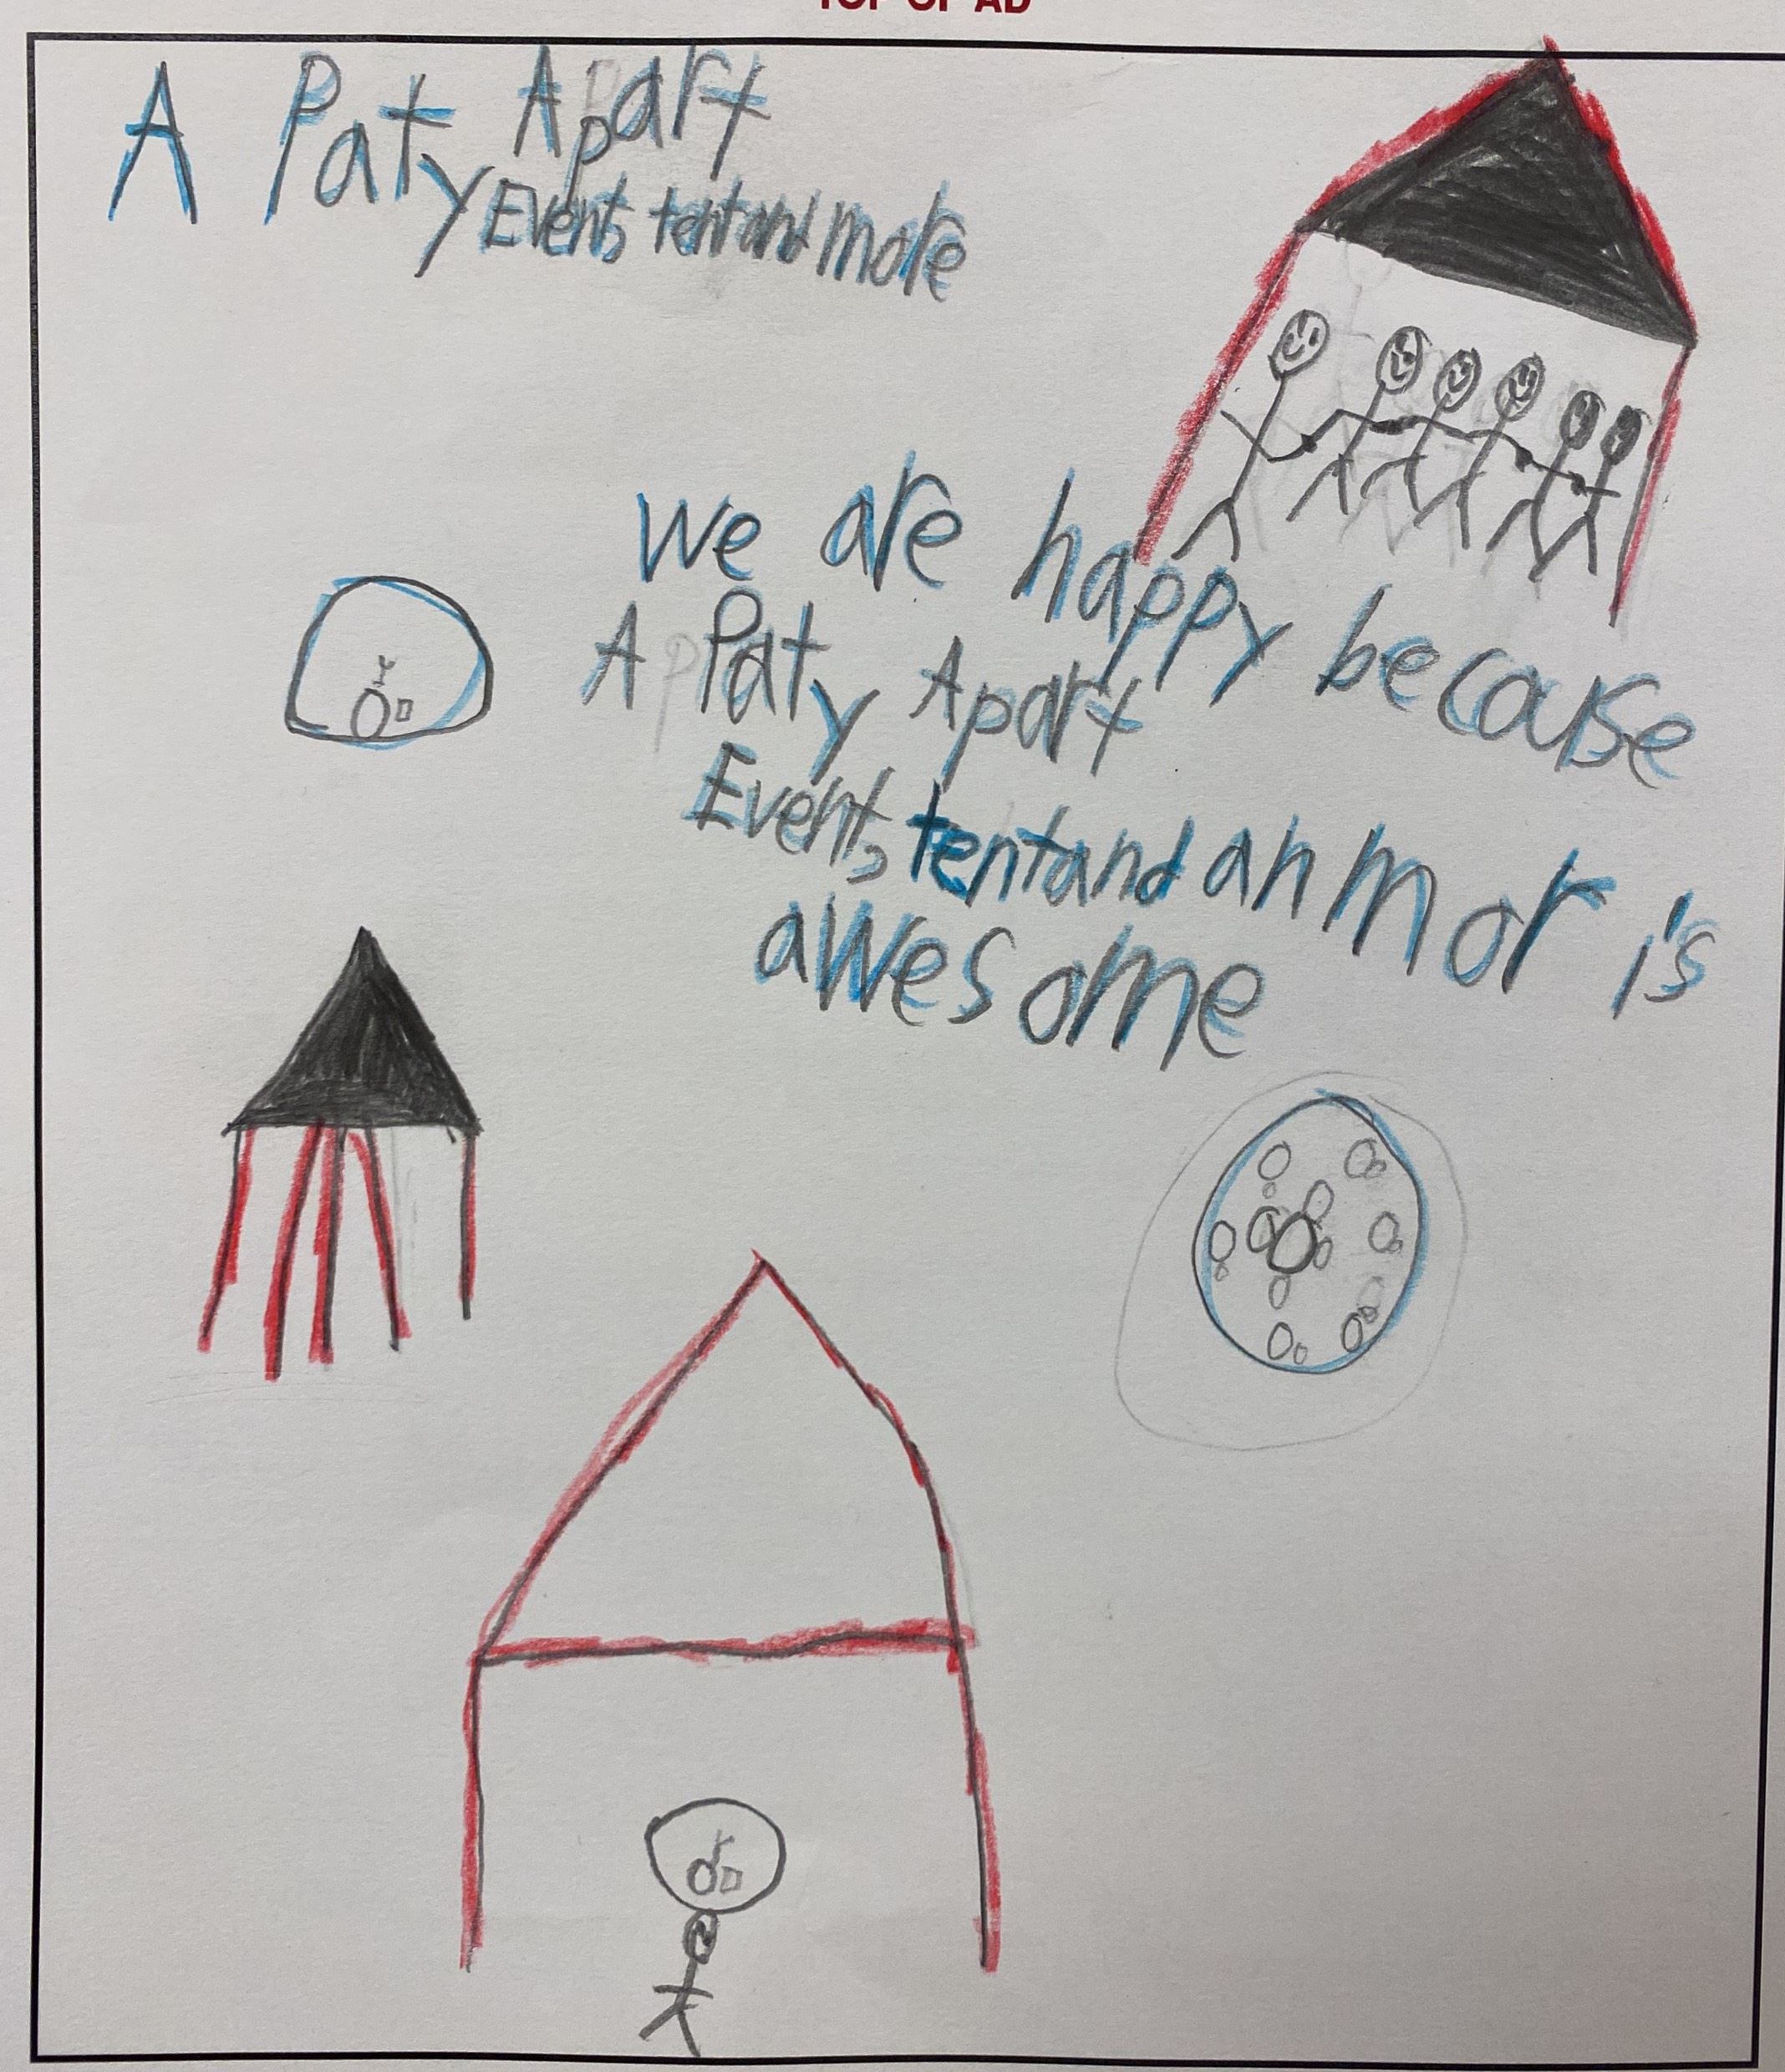 TOP OF AD
A Paty Apart
Events tent and more
we are happy because
A Paty Apart
Events tent and an mor is
awesome